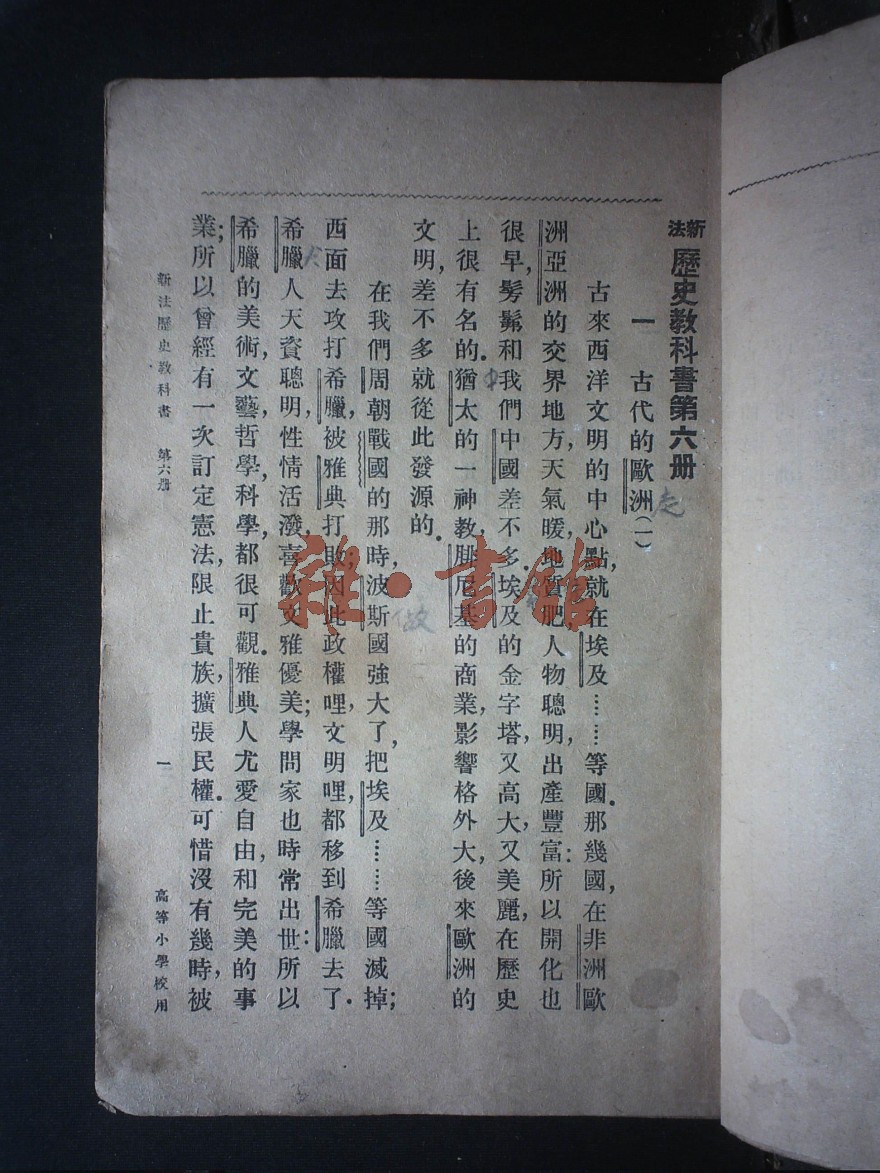 新法歷史教科書第六册
一　古代的歐洲(一)
古來西洋文明的中心點,就在埃及……等國.那幾國,在非洲歐
洲亞洲的交界地方,天氣暖,地質肥,人物聰明,出產豐富:所以開化也
很早,髣髴和我們中國差不多.埃及的金字塔,又高大,又美麗,在歷史
上很有名的.猶太的一神教,腓尼基的商業,影響格外大,後來歐洲的
文明,差不多就從此發源的.
在我們周朝戰國的那時,波斯國強大了,把埃及……等國滅掉;
西面去攻打希臘,被雅典打敗;因此政權哩,文明哩,都移到希臘去了.
希臘人天資聰明,性情活潑,喜歡文雅優美;學問家也時常出世:所以
希臘的美術,文藝,哲學,科學,都很可觀.雅典人尤愛自由,和完美的事
業;所以曾經有一次訂定憲法,限止貴族,擴張民權.可惜沒有幾時,被
新法歷史教科書　第六册　一　高等小學校用
雜·書館